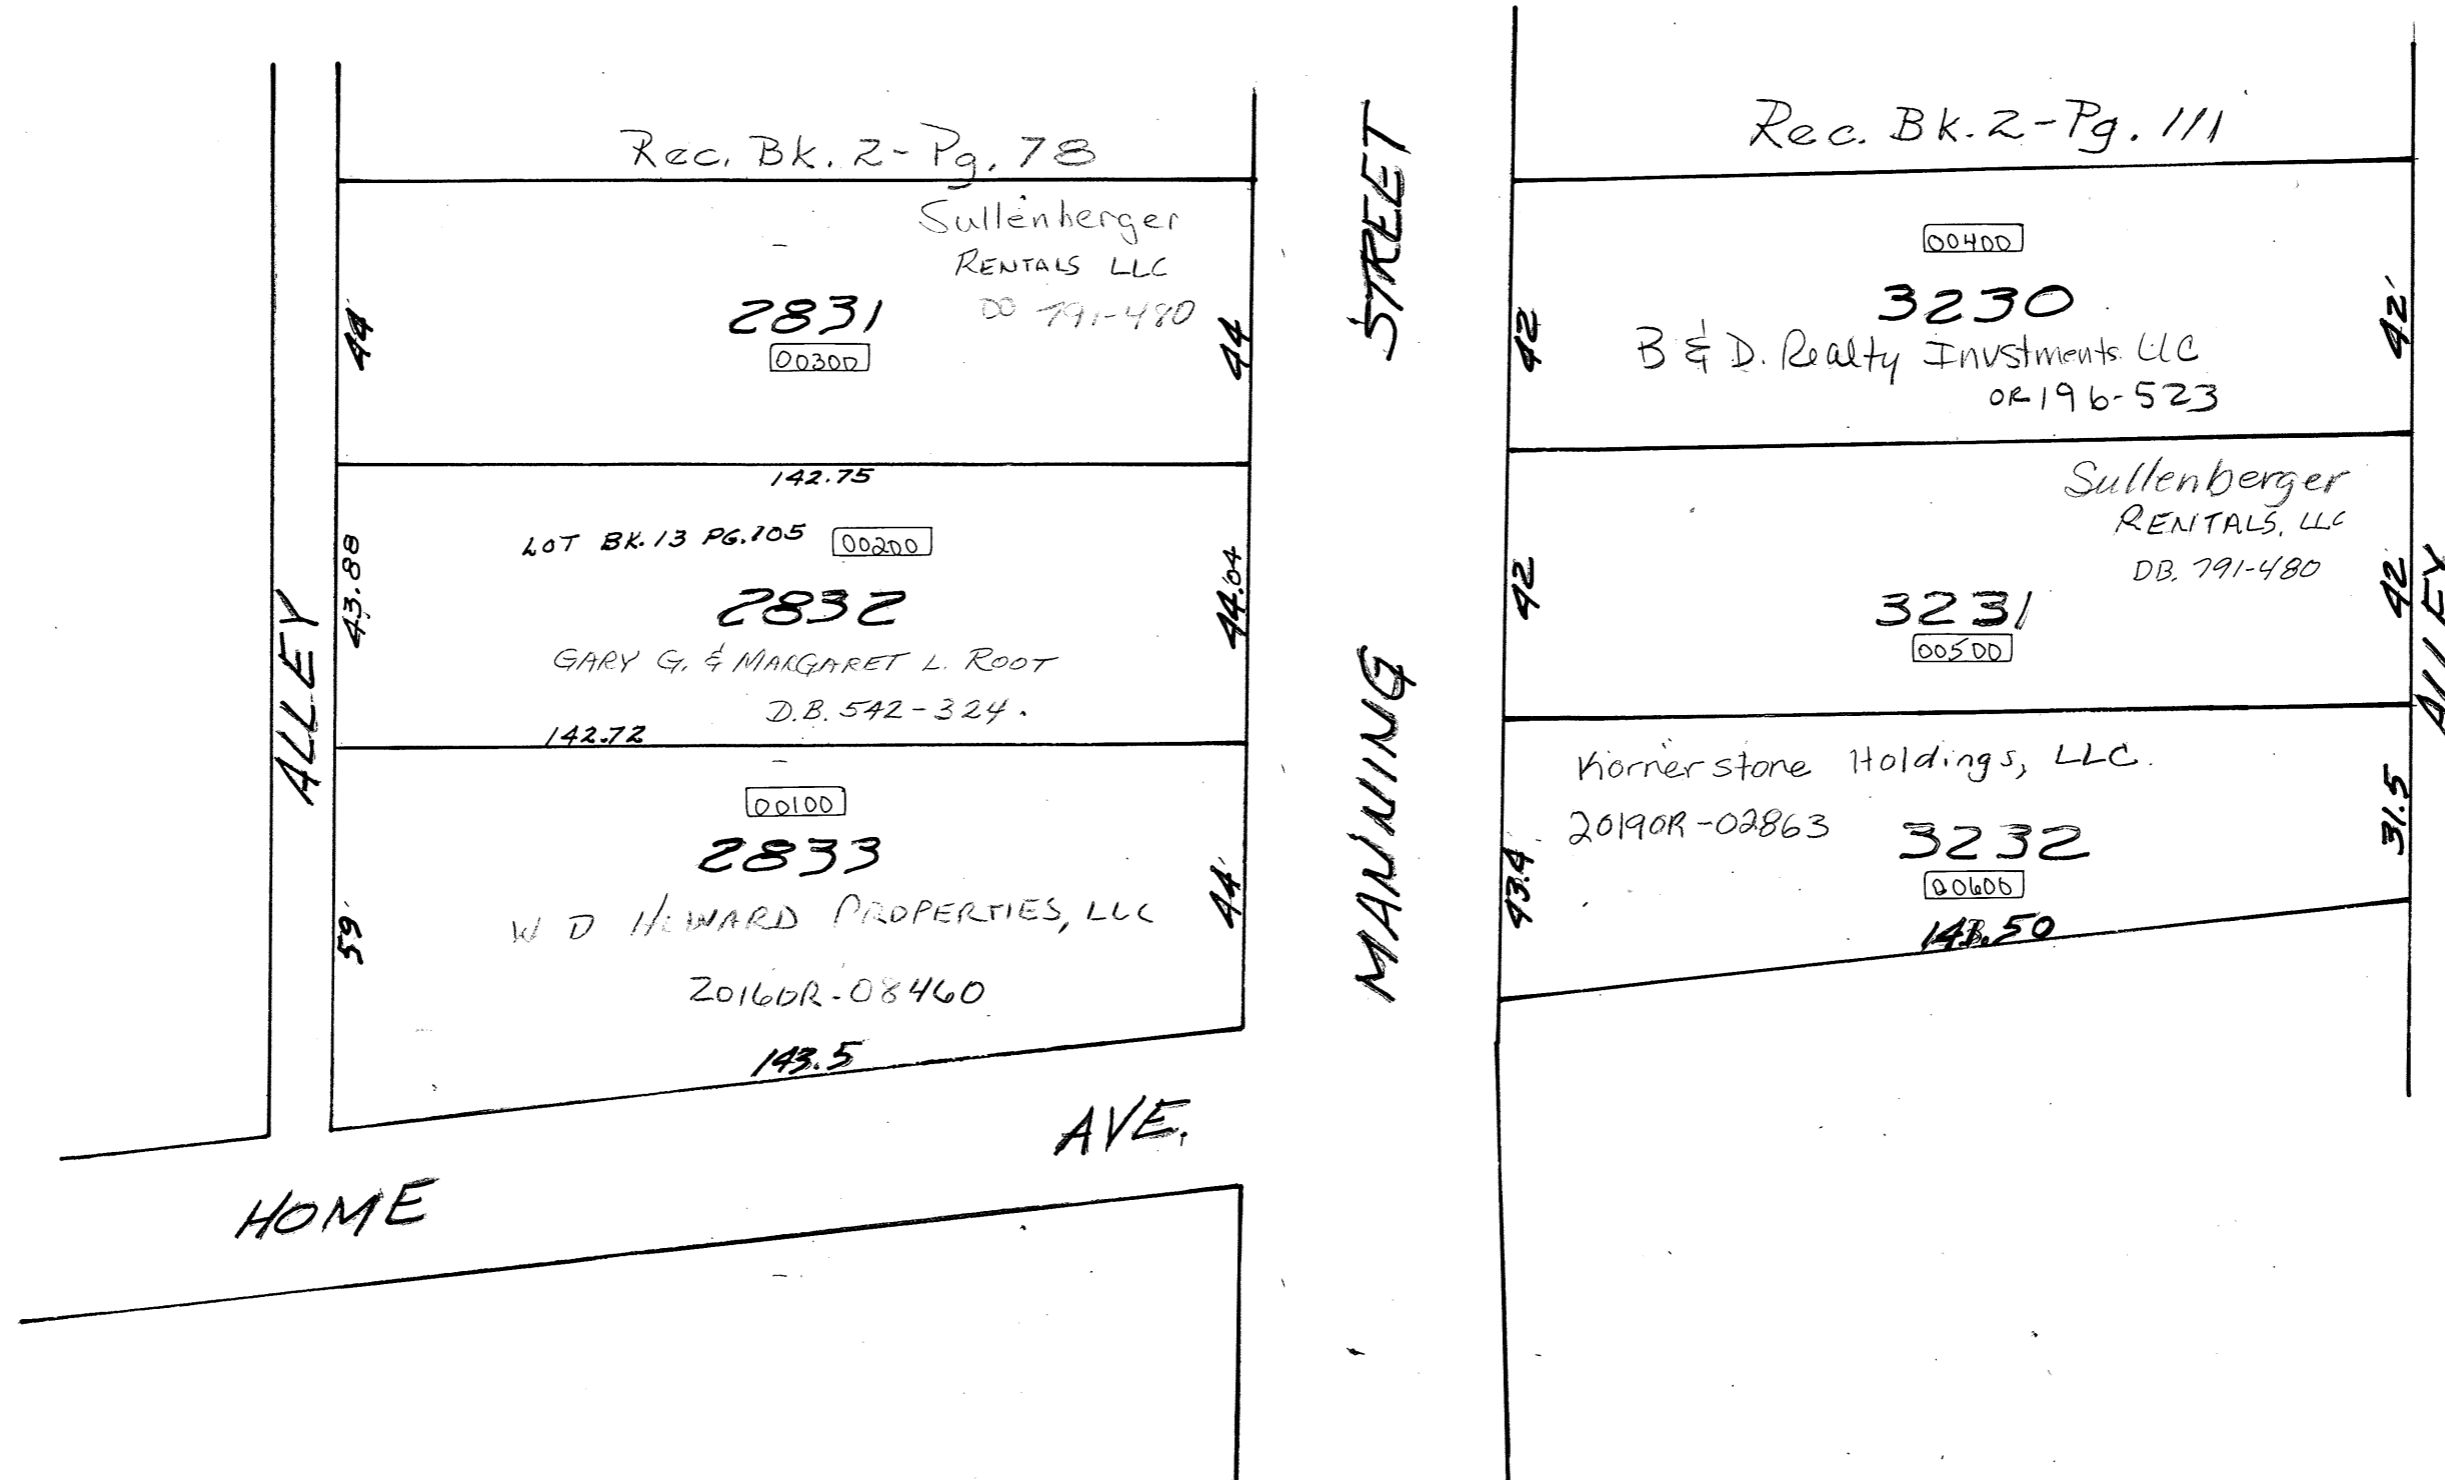 Rec. Bk. 2-Pg. 78
Sullenberger
RENTALS LLC
791-480
2831
00300
44
44
142.75
LOT BK. 13 PG. 105
00200
2832
43.88
44.04
GARY G. & MARGARET L. ROOT
D.B. 542-324.
142.72
00100
2833
W D HOWARD PROPERTIES, LLC
2016OR-08460
59'
44'
143.5
ALLEY
HOME
AVE.
MANNING
STREET
Rec. Bk. 2-Pg. 111
00400
3230
B & D. Realty Invstments LLC
OR 196-523
42
42'
Sullenberger
RENTALS, LLC
DB. 791-480
3231
00500
42
42
Kornerstone Holdings, LLC.
2019OR-02863
3232
00600
43.4
31.5
ALLEY